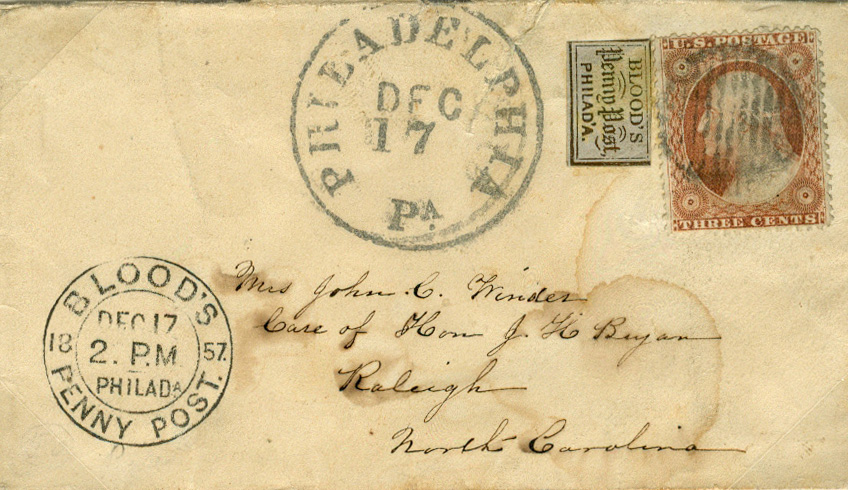 PHILADELPHIA
DEC
17
PA
BLOOD'S
Penny Post,
PHILAD'A.
U.S. POSTAGE
THREE CENTS
BLOOD'S
DEC 17
18 2. P.M. 57.
PHILADA
PENNY POST.
Mrs John. C. Winder
Care of Hon J. H Bryan
Raleigh
North Carolina